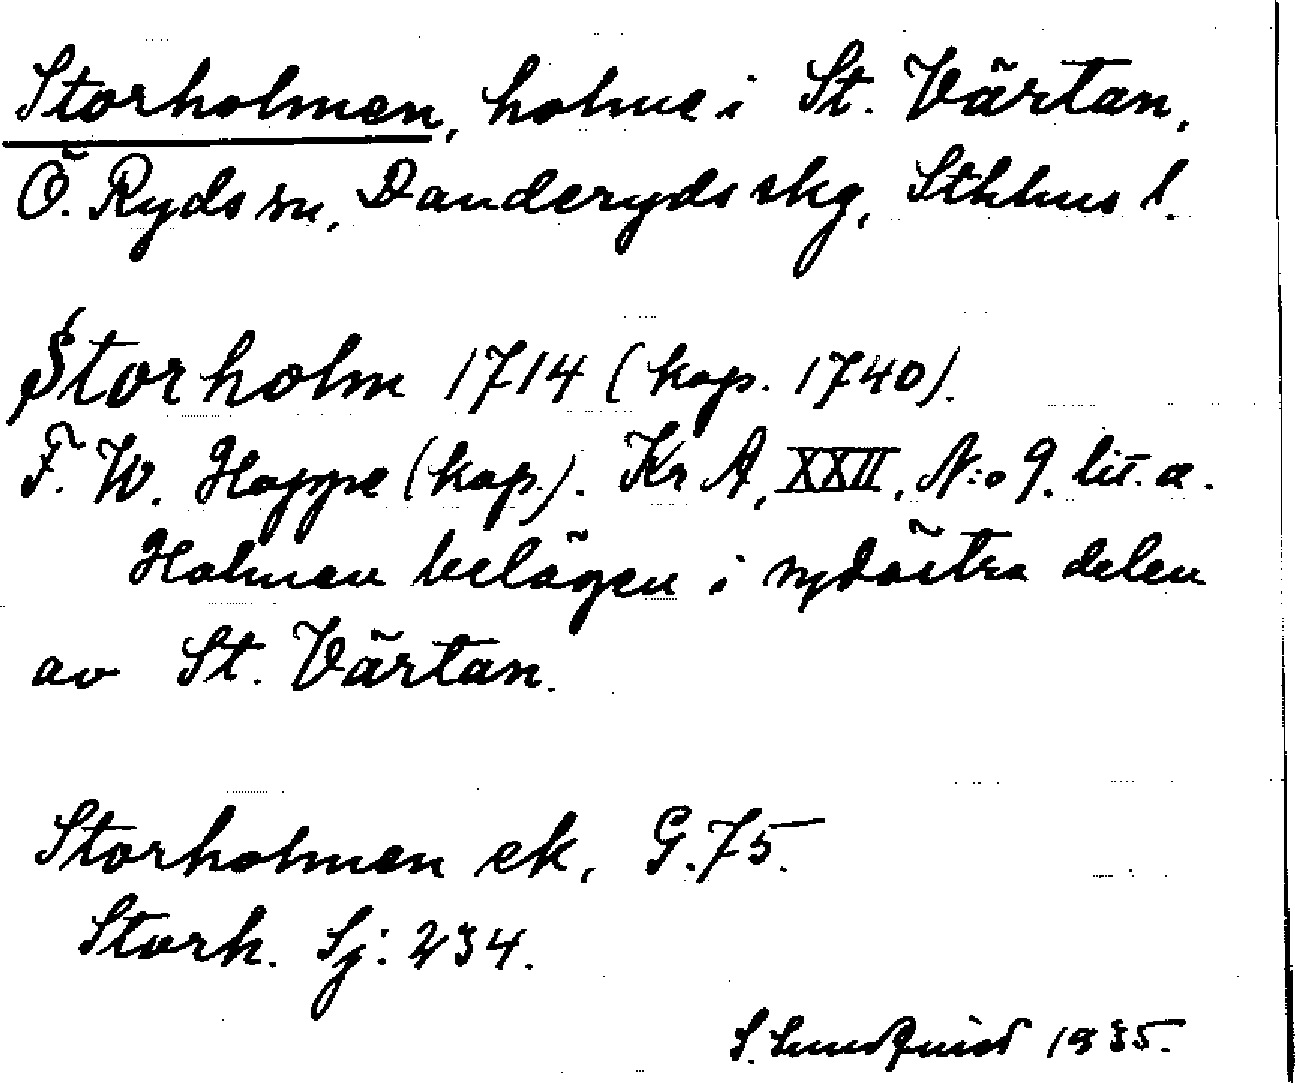 Storholmen, holme i St. Värtan,
Ö. Ryds sn, Danderyds skg, Sthlms l.
Storholm 1714 (kop. 1740).
F. W. Hoppe (kop.). Kr A, XXII, N:o 9. lit. a.
Holmen belägen i sydöstra delen
av St. Värtan.
Storholmen ek. G. 75.
Storh. Sj: 234.
S. Lundquist 1935.